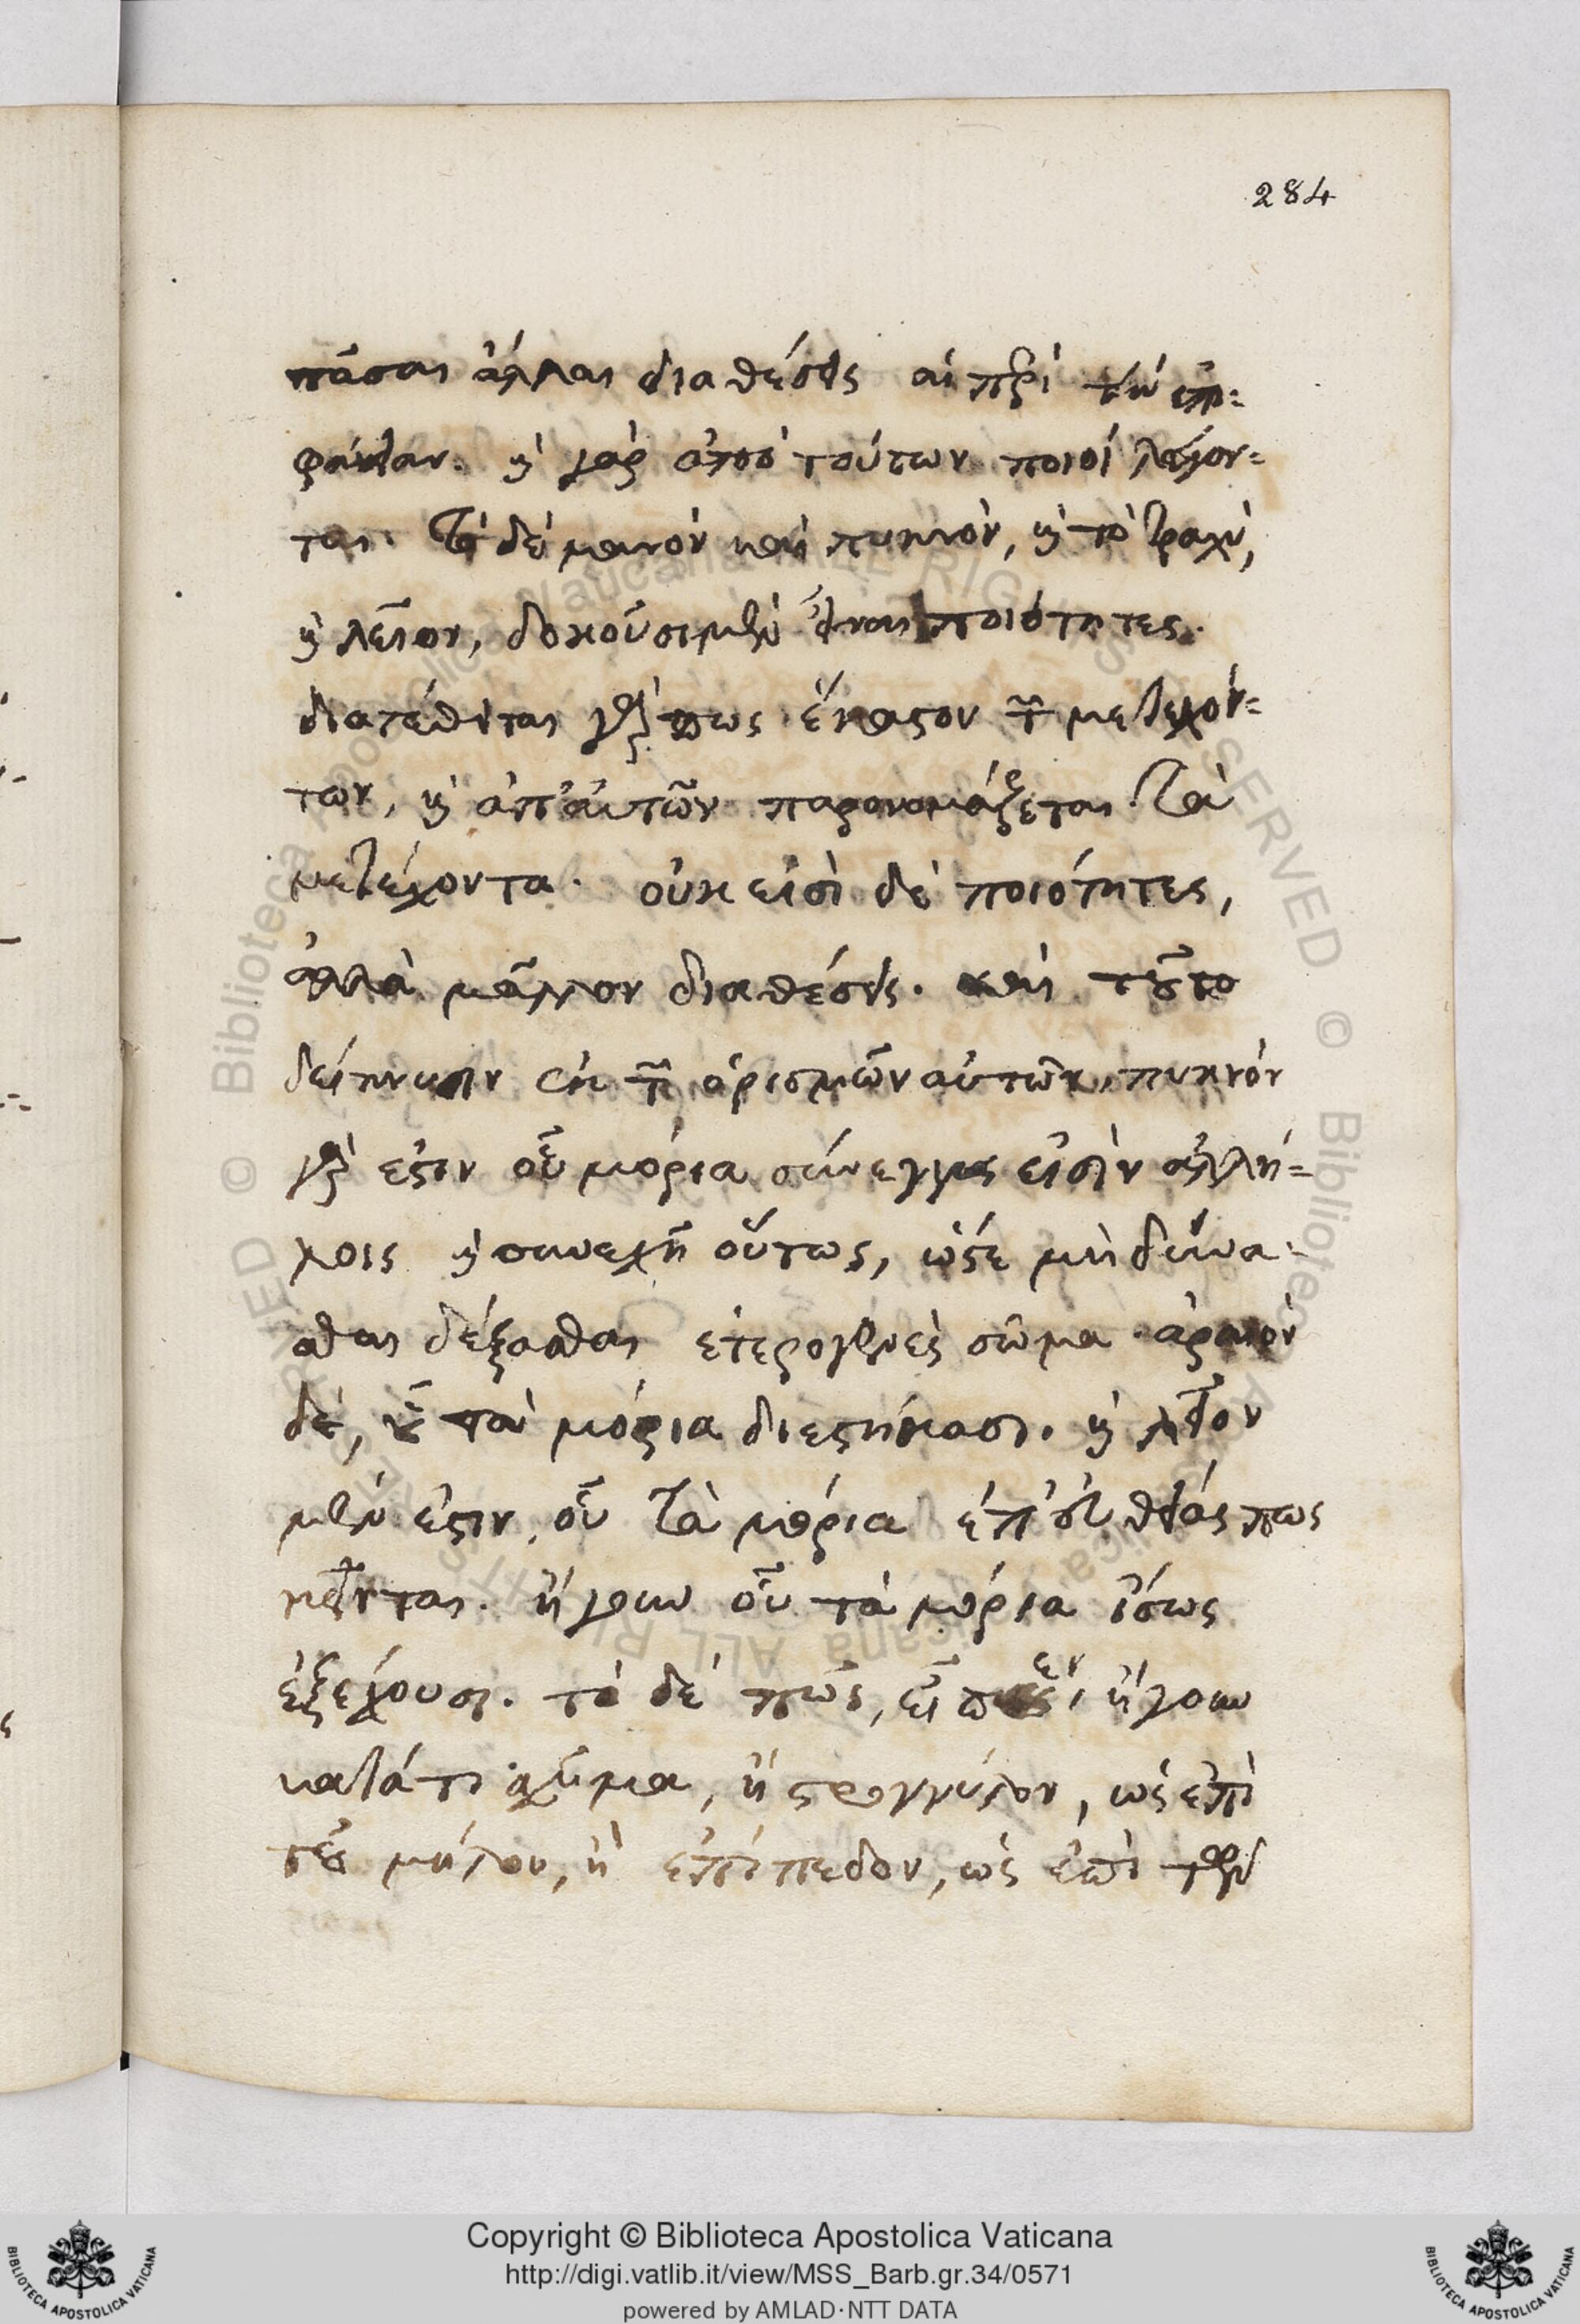 284
πᾶσαι ἄλλαι διαθέσεις αἱ περὶ τὴν ἐπι-
φάνειαν. καὶ γὰρ ἀπὸ τούτων ποιοὶ λέγον-
ται. τὸ δὲ μανὸν καὶ πυκνὸν, καὶ τὸ τραχὺ,
καὶ λεῖον, δοκοῦσι μὲν εἶναι ποιότητες.
διατέθειται γάρ πως ἕκαστον τῶν μετεχόν-
των, καὶ ἀπ' αὐτῶν παρονομάζεται τὰ
μετέχοντα. οὐκ εἰσὶ δὲ ποιότητες,
ἀλλὰ μᾶλλον διαθέσεις. καὶ τοῦτο
δείκνυσιν ἐκ τῶν ὁρισμῶν αὐτῶν. πυκνὸν
γὰρ ἐστιν οὗ μόρια σύνεγγυς εἰσὶν ἀλλή-
λοις καὶ συνεχῆ οὕτως, ὥστε μὴ δύνα-
σθαι δέξασθαι ἑτερογενὲς σῶμα. ἀραιὸν
δὲ, οὗ τὰ μόρια διεστήκασι. καὶ λεῖον
μέν ἐστιν, οὗ τὰ μόρια ἐπ' εὐθείας πως
κεῖνται. ἤγουν οὗ τὰ μόρια ἴσως
ἐξέχουσι. τὸ δὲ πῶς, εἶπεν, ἤγουν
κατά τι σχῆμα, ἢ στρογγύλον, ὡς ἐπὶ
τοῦ μήλου, ἢ ἐπίπεδον, ὡς ἐπὶ τῶν
Copyright © Biblioteca Apostolica Vaticana
http://digi.vatlib.it/view/MSS_Barb.gr.34/0571
powered by AMLAD·NTT DATA